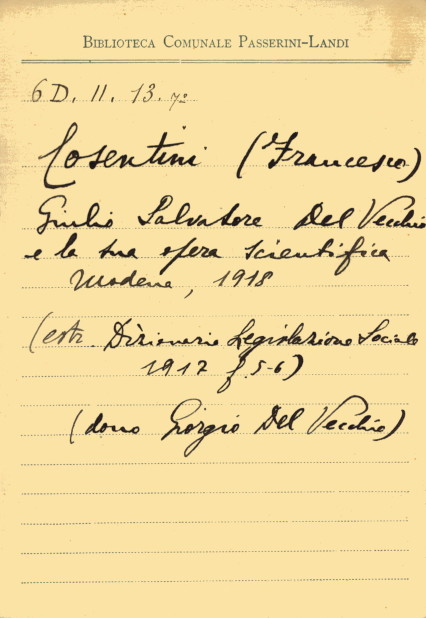 BIBLIOTECA COMUNALE PASSERINI-LANDI
6 D. II. 13. 7º
Cosentini (Francesco)
Giulio Salvatore Del Vecchio
e la sua opera scientifica
Modena, 1918
(estr. Dizionario Legislazione Sociale
1917 f. 5-6)
(dono Giorgio Del Vecchio)